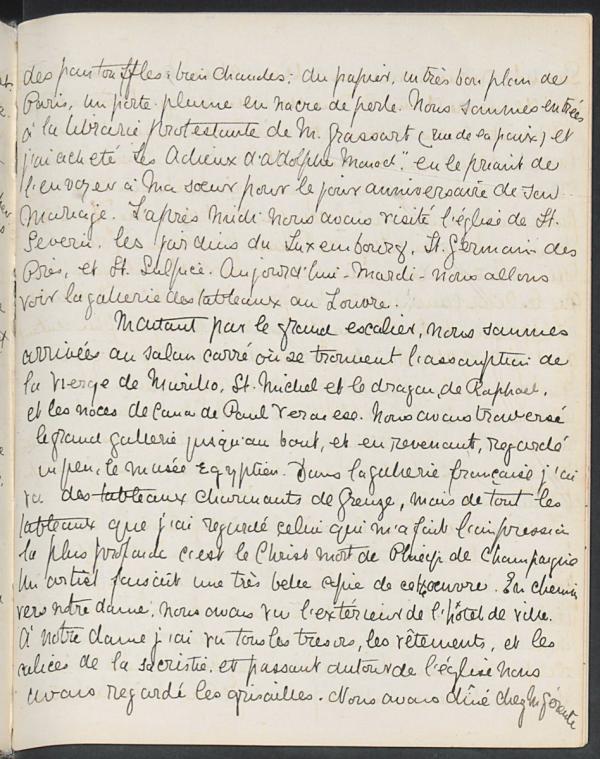 des pantouffles bien chaudes; du papier, un très bon plan de
Paris, un porte-plume en nacre de perle. Nous sommes entrées
à la librarie protestante de M. Grassart (rue de la paix) et
j'ai acheté "Les Adieux d'Adolphe Monod" en le priant de
l'envoyer à ma sœur pour le jour anniversaire de son
mariage. L'après midi nous avons visité l'église de St.
Severin, les jardins du Luxembourg, St. Germain des
Près, et St. Sulpice. Aujourd'hui - Mardi - nous allons
voir la gallerie des tableaux au Louvre.
Montant par le grand escalier, nous sommes
arrivées au salon carré où se trouvent l'assomption de
la vierge de Murillo, St. Michel et le dragon, de Raphael,
et les noces de Cana de Paul Veronese. Nous avons traversé
le grand gallerie jusqu'au bout, et en revenant, regardé
un peu, le musée Egyptien. Dans la gallerie française j'ai
vu des tableaux charmants de Greuze, mais de tout les
tableaux que j'ai regardé celui qui m'a fait l'impression
la plus profonde c'est le Christ mort de Philip de Champagne
Un artist faisait une très belle copie de ce œuvre. En chemin
vers notre dame, nous avons vu l'extérieur de l'hôtel de ville.
À notre dame j'ai vu tous les tresors, les vêtements, et les
calices de la sacristie, et passant autour de l'église nous
avons regardé les grisailles. Nous avons dîné chez M. Gérente